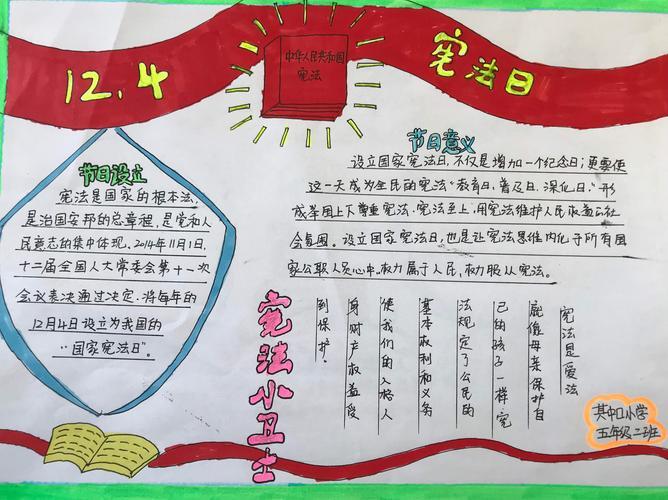 12.4
中华人民共和国
宪法
宪法日
节日设立
宪法是国家的根本法,
是治国安邦的总章程,是党和人
民意志的集中体现。2014年11月1日,
十二届全国人大常委会第十一次
会议表决通过决定,将每年的
12月4日设立为我国的
“国家宪法日”。
节日意义
设立国家宪法日,不仅是增加一个纪念日;更要使
这一天成为全民的宪法“教育日、普及日、深化日。”形
成举国上下尊重宪法、宪法至上、用宪法维护人民权益的社
会氛围。设立国家宪法日,也是让宪法思维内化于所有国
家公职人员心中。权力属于人民,权力服从宪法。
宪法是爱法
像母亲保护自
己的孩子一样宪
法规定了公民的
基本权利和义务
使我们的人格人
身财产权益受
到保护。
宪法小卫士
其中口小学
五年级二班